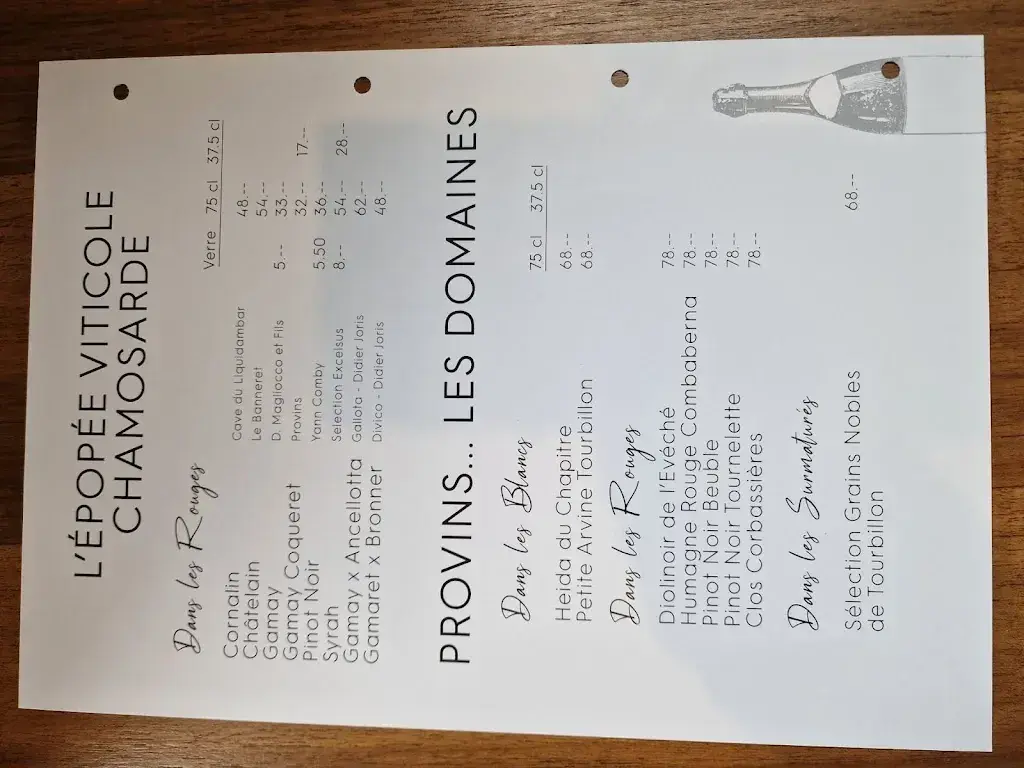 L'ÉPOPÉE VITICOLE
CHAMOSARDE
Dans les Rouges
Verre 75 cl 37.5 cl
Cornalin Cave du Liquidambar 48.--
Châtelain Le Banneret 54.--
Gamay D. Magliocco et Fils 5.-- 33.--
Gamay Coqueret Provins 32.-- 17.--
Pinot Noir Yann Comby 5.50 36.--
Syrah Selection Excelsus 8.-- 54.-- 28.--
Gamay x Ancellotta Gallota - Didier Joris 62.--
Gamaret x Bronner Divico - Didier Joris 48.--
PROVINS... LES DOMAINES
Dans les Blancs
75 cl 37.5 cl
Heida du Chapitre 68.--
Petite Arvine Tourbillon 68.--
Dans les Rouges
Diolinoir de l'Evéché 78.--
Humagne Rouge Combaberna 78.--
Pinot Noir Beuble 78.--
Pinot Noir Tournelette 78.--
Clos Corbassières 78.--
Dans les Surmaturés
Sélection Grains Nobles 68.--
de Tourbillon